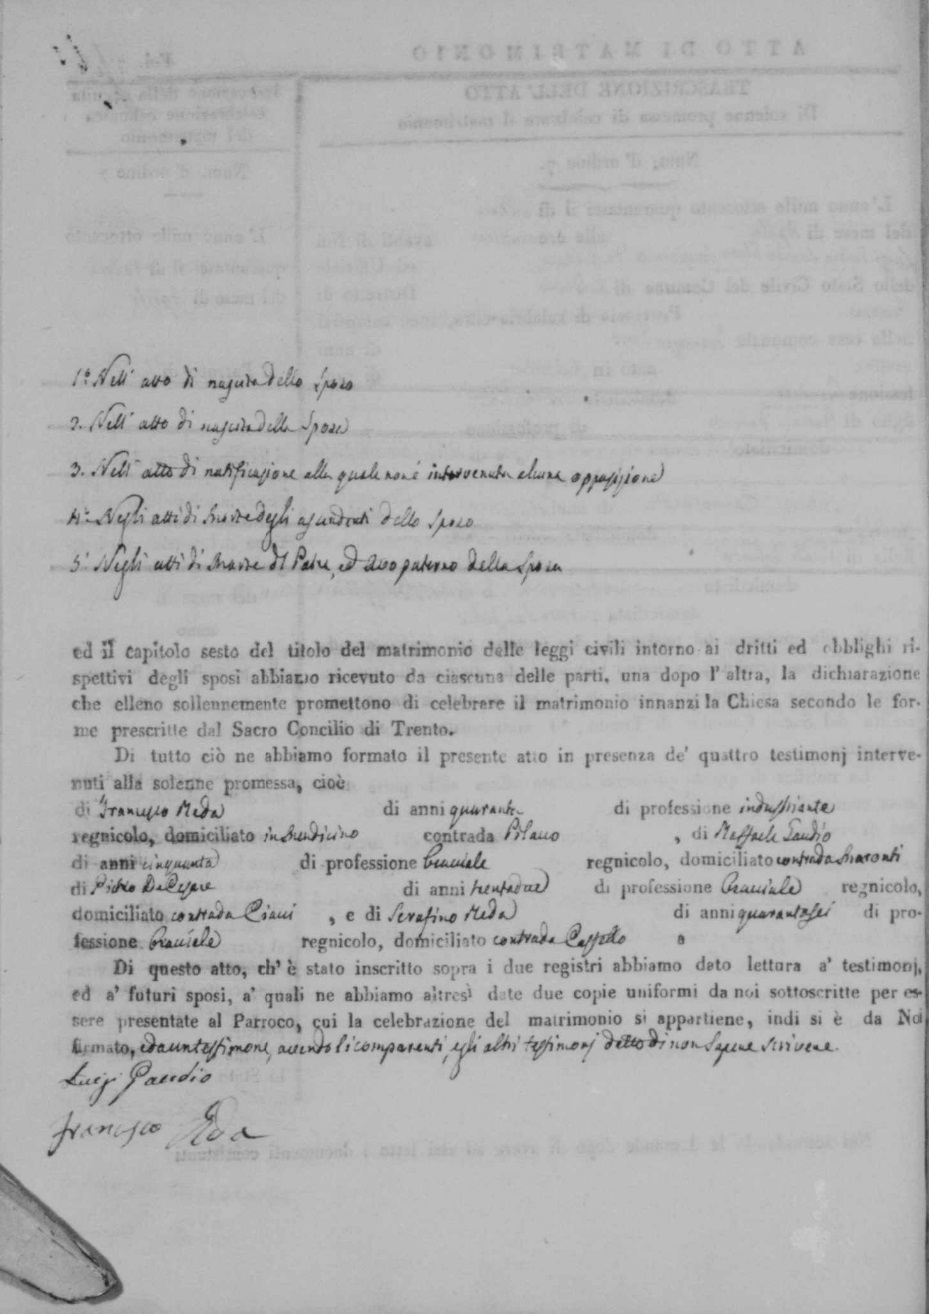 1.º Nell' atto di nascita dello Sposo
2. Nell' atto di nascita della Sposa
3. Nell' atto di notificazione alla quale non è intervenuta alcuna opposizione
4.º Negli atti di morte degli ascendenti dello Sposo
5.º Negli atti di morte del Padre, ed Avo paterno della Sposa
ed il capitolo sesto del titolo del matrimonio delle leggi civili intorno ai dritti ed obblighi ri-
spettivi degli sposi abbiamo ricevuto da ciascuna delle parti, una dopo l' altra, la dichiarazione
che elleno sollennemente promettono di celebrare il matrimonio innanzi la Chiesa secondo le for-
me prescritte dal Sacro Concilio di Trento.
Di tutto ciò ne abbiamo formato il presente atto in presenza de' quattro testimonj interve-
nuti alla solenne promessa, cioè
di Francesco Reda di anni quaranta di professione industriante
regnicolo, domiciliato in Mendicino contrada , di Raffaele Gaudio
di anni cinquanta di professione Bracciale regnicolo, domiciliato contrada
di Pietro De Cesare di anni trentadue di professione Bracciale regnicolo,
domiciliato contrada , e di Serafino Reda di anni quarantasei di pro-
fessione Bracciale regnicolo, domiciliato contrada
Di questo atto, ch' è stato inscritto sopra i due registri abbiamo dato lettura a' testimonj,
ed a' futuri sposi, a' quali ne abbiamo altresì date due copie uniformi da noi sottoscritte per es-
sere presentate al Parroco, cui la celebrazione del matrimonio si appartiene, indi si è da Noi
firmato, ed a un testimone, avendo li comparenti, e gli altri testimonj detto di non sapere scrivere.
Luigi Gaudio
Francesco Reda